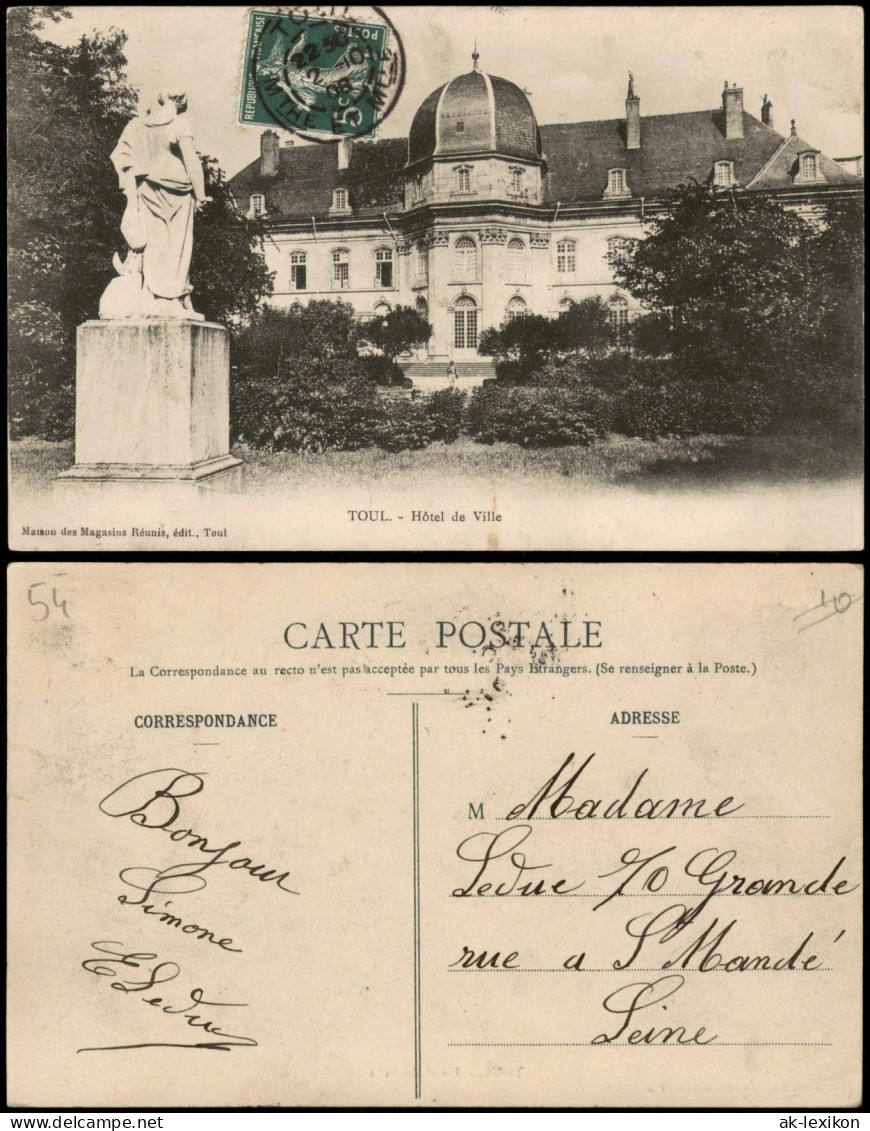 TOUL
22 50
2 -10
08
MTHE ET MLLE
REPUBLIQUE FRANÇAISE
POSTES
5c
TOUL. - Hôtel de Ville
Maison des Magasins Réunis, édit., Toul
54
10
CARTE POSTALE
La Correspondance au recto n'est pas acceptée par tous les Pays Etrangers. (Se renseigner à la Poste.)
CORRESPONDANCE
ADRESSE
Bonjour
Simone
ELeduc
M Madame
Leduc 70 Grande
rue a St Mandé
Seine
www.ansichtskarten-lexikon.de
ak-lexikon